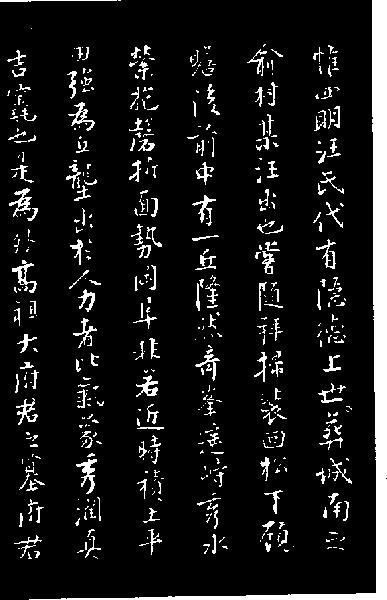 惟四明汪氏代有隐德上世葬城南之
俞村某汪出也嘗随拜掃裴回松下顧
瞻后前中有一丘隆然奇峯遠峙秀水
縈抱磬折面勢岡阜非若近時積土平
田强為丘壟出於人力者比氣象秀潤真
吉竁也是為外高祖大府君之墓府君